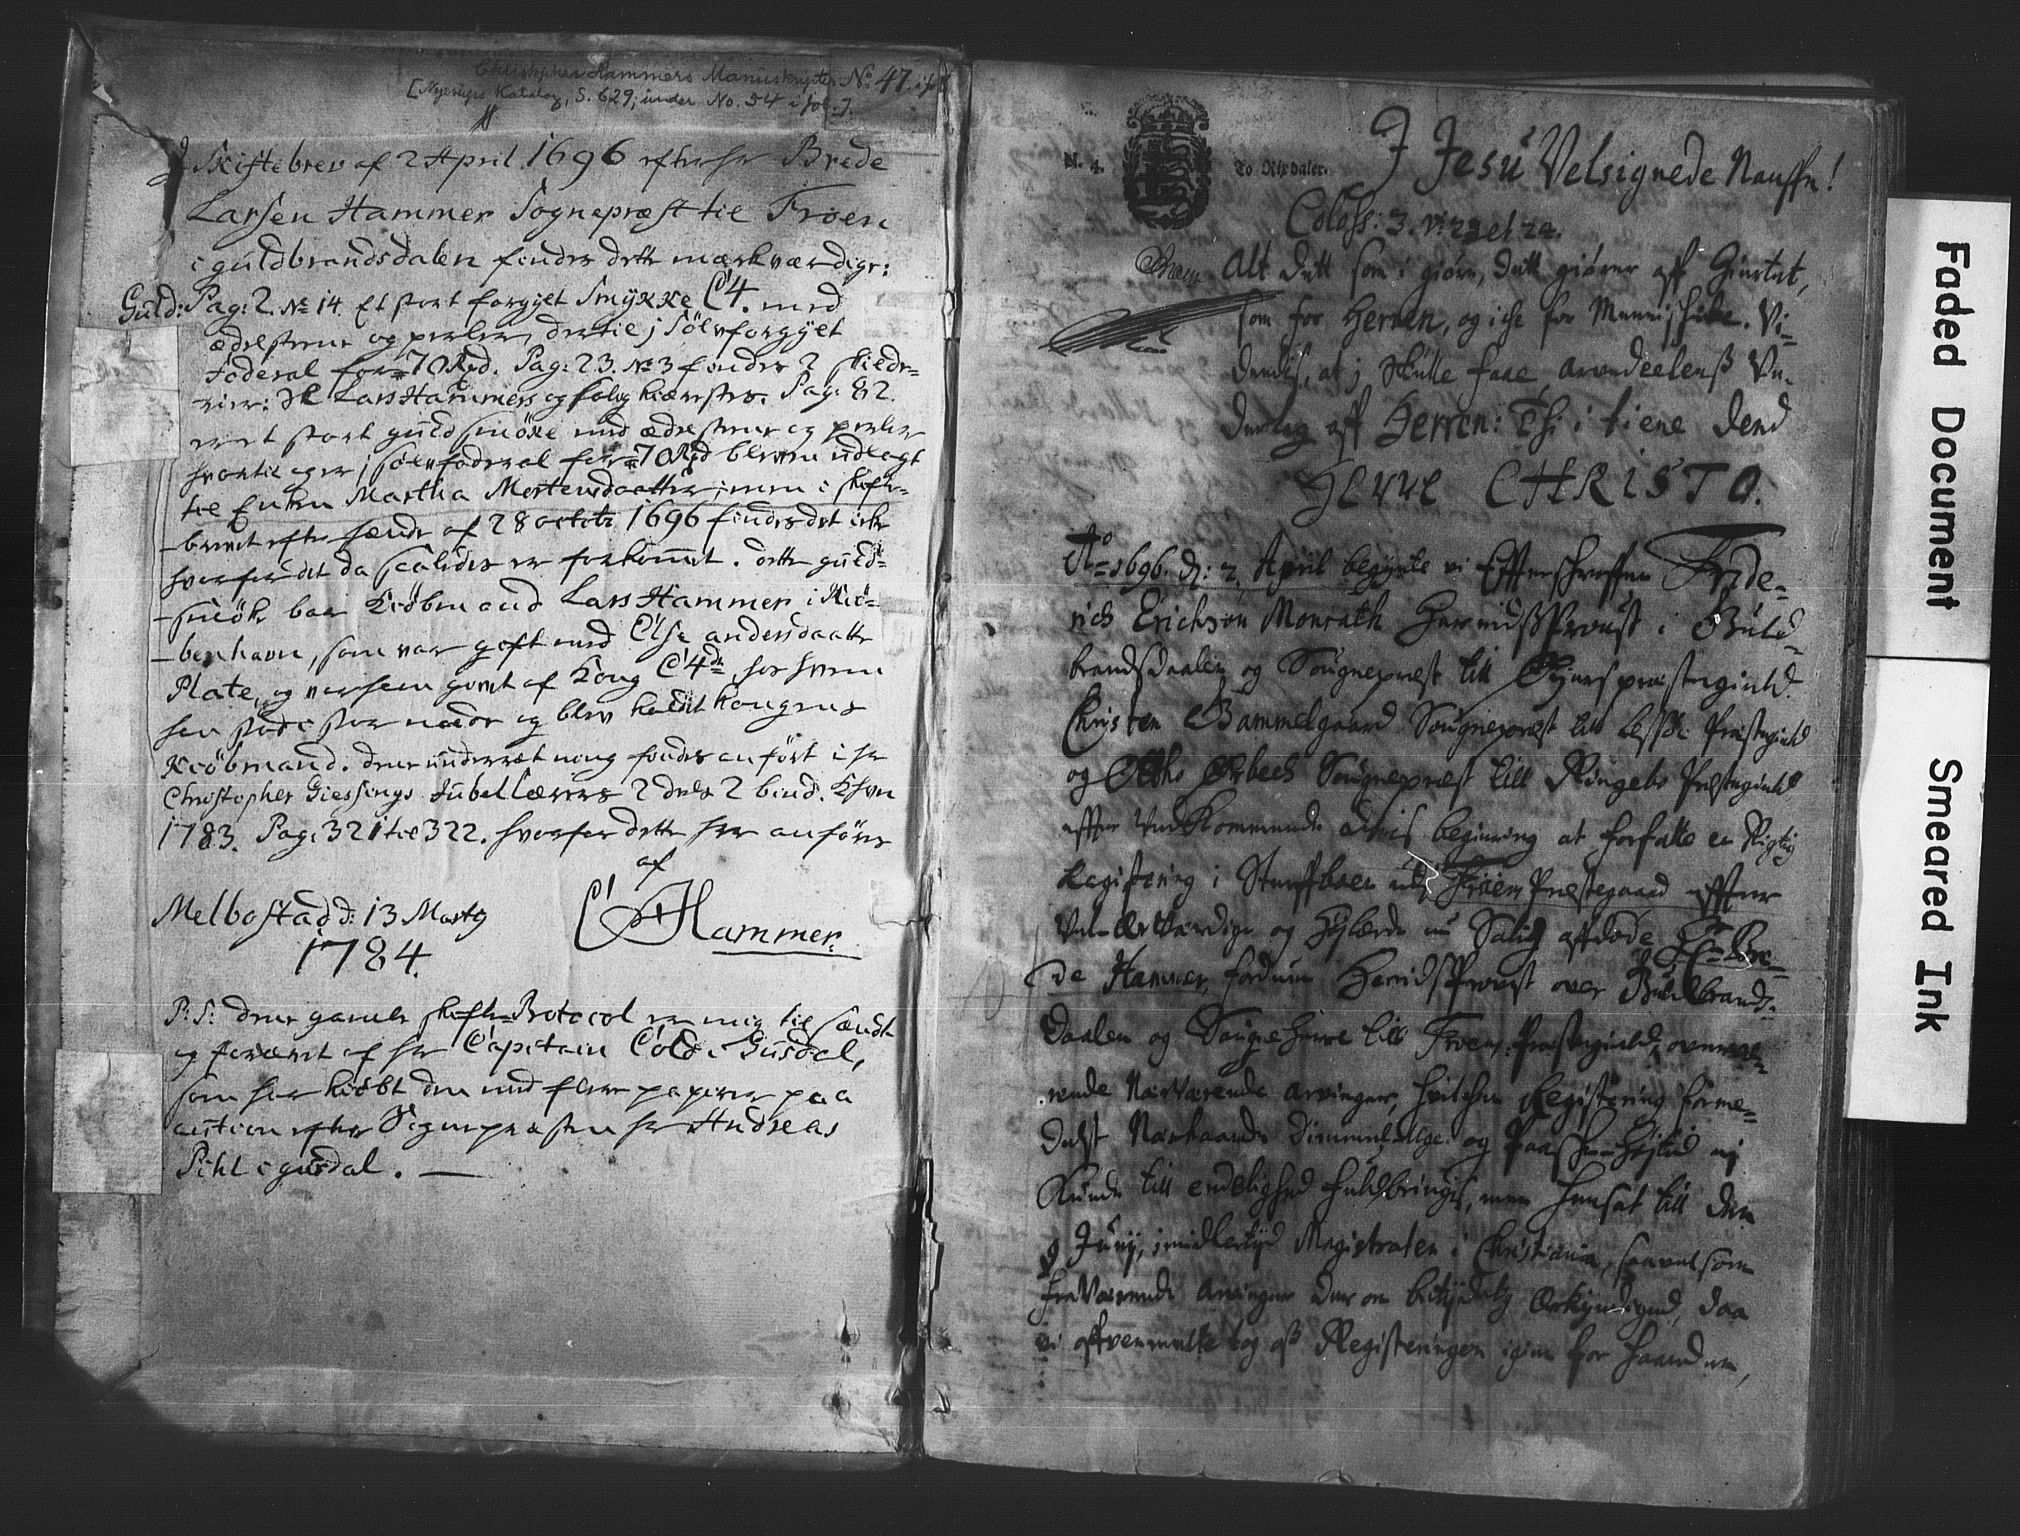 Christopher Hammers Manuskripter No. 47. i fol.
[Nyerups Katalog, S. 629; under No. 54 i fol.].
J Skiftebrev af 2 April 1696 efter hr Brede
Larsen Hammer Sognepræst til Froen
i guldbrandsdalen findes dette mærkværdige:
Guld: Pag: 2. No 14. Et stort forgyet Smykke C4. med
ædelstene og perler, dertil j sölvforgyet
foderal for 70 Rd. Pag: 23. No 3 findes 2 skilde-
rier: Sl Lars Hammers og salig kierestes. Pag: 82.
er et stort guld smöke med ædelstene og perler
hvortil og er j sölvfoderal for 70 Rd bleven udlagt
til Enken Martha Mortensdaatter; men i skifte-
brevet efter hende af 28 octobr 1696 findes det icke
hvorfor det da saaledes er forkommet. dette guld-
smök bar Kiöbmand Lars Hammer i Kiö-
benhavn, som var gift med Else andersdaatter
Plate, og var hem givet af Kong C4de hos hvem
hen stod i stor naade og blev kaldt Kongens
Kiöbmand. denne underretning findes anfört i hr
Christopher Giessings Jubellærere 2 deels 2 bind. Khvn
1783. Pag: 321 til 322. hvorfor dette her anföres
af
Melbostad d: 13 Marty
1784.
C Hammer.
P: S: denne gamle skifte-Protocol er mig tilsændt
og foræret af hr Capitain Cold i Gusdal,
som har kiöbt den med flere papirer paa
auction efter Sogneprästen hr Andreas
Pihl i gusdal.
N. 4.
To Rixdaler.
J Jesu Velsignede Naffn!
Coloss: 3. v: 23 et 24.
Alt dett som i giöre, dett giörer aff Hiertet,
som for Herren, og iche for Mennischene. Vi-
dendis, at j skulle faae arvedeelens Ve-
derlag aff Herren: Thi i tiene dend
HErre CHRISTO.
Ao 1696. d: 2. April begynte vi Effterschreffne Fride-
rich Erichson Monrath Herridsprovst i Guld-
brandsdaalen og Sougnepræst till Öyers præstegield
Christen Gammelgaard Sougnepræst till Lessöe Præstegield
og Otto Örbech Sougnepræst till Ringeboe Præstegield
effter Vedkommende arvis begiering at forfatte en Rigtig
Registering i Sterffboen udi Froens Præstegaard effter
Vel-ærværdige og Höjlærde nu Salig affdöde Hr. Bre-
de Hammer, fordum Herridsprovst over Guldbrands-
daalen og Sougneherre till Froens Præstegield, overvæ-
rende Nærværende arvinger, hvilchen Registering forme-
delst Nærhaanden Dimmelluge og Paasche-Höjtid ej
Kunde till endelighed fuldbringes, men henset till den
9 Junij, imidlertijd Magistraten i Christiania, saavel som
fraværende arvinger der om betijdelig Ærkyndiged, daa
vi offvermelte tog oss Registeringen igien for haanden,
Faded Document
Smeared Ink